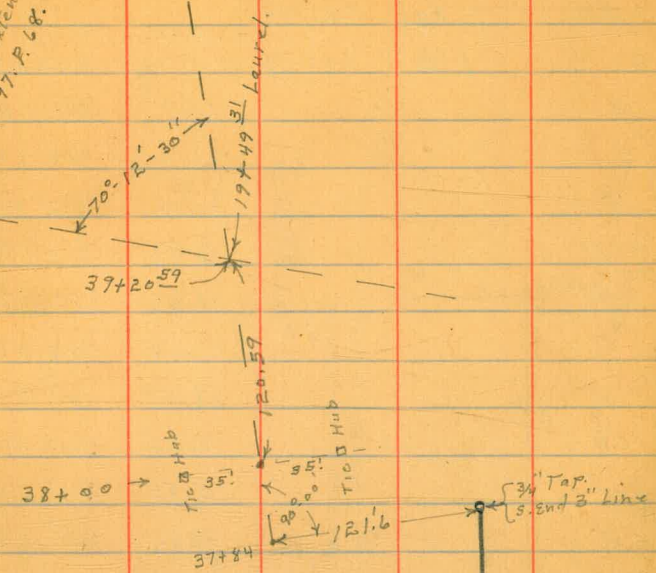 97. P. 68.
70°-12'-30"
19+49 31 Laurel.
39+20 59
120.59
Tie Hub
35'
35'
Tie Hub
38+00
90°00'
121.6
3/4" Tap.
S. End 3" Line
37+84